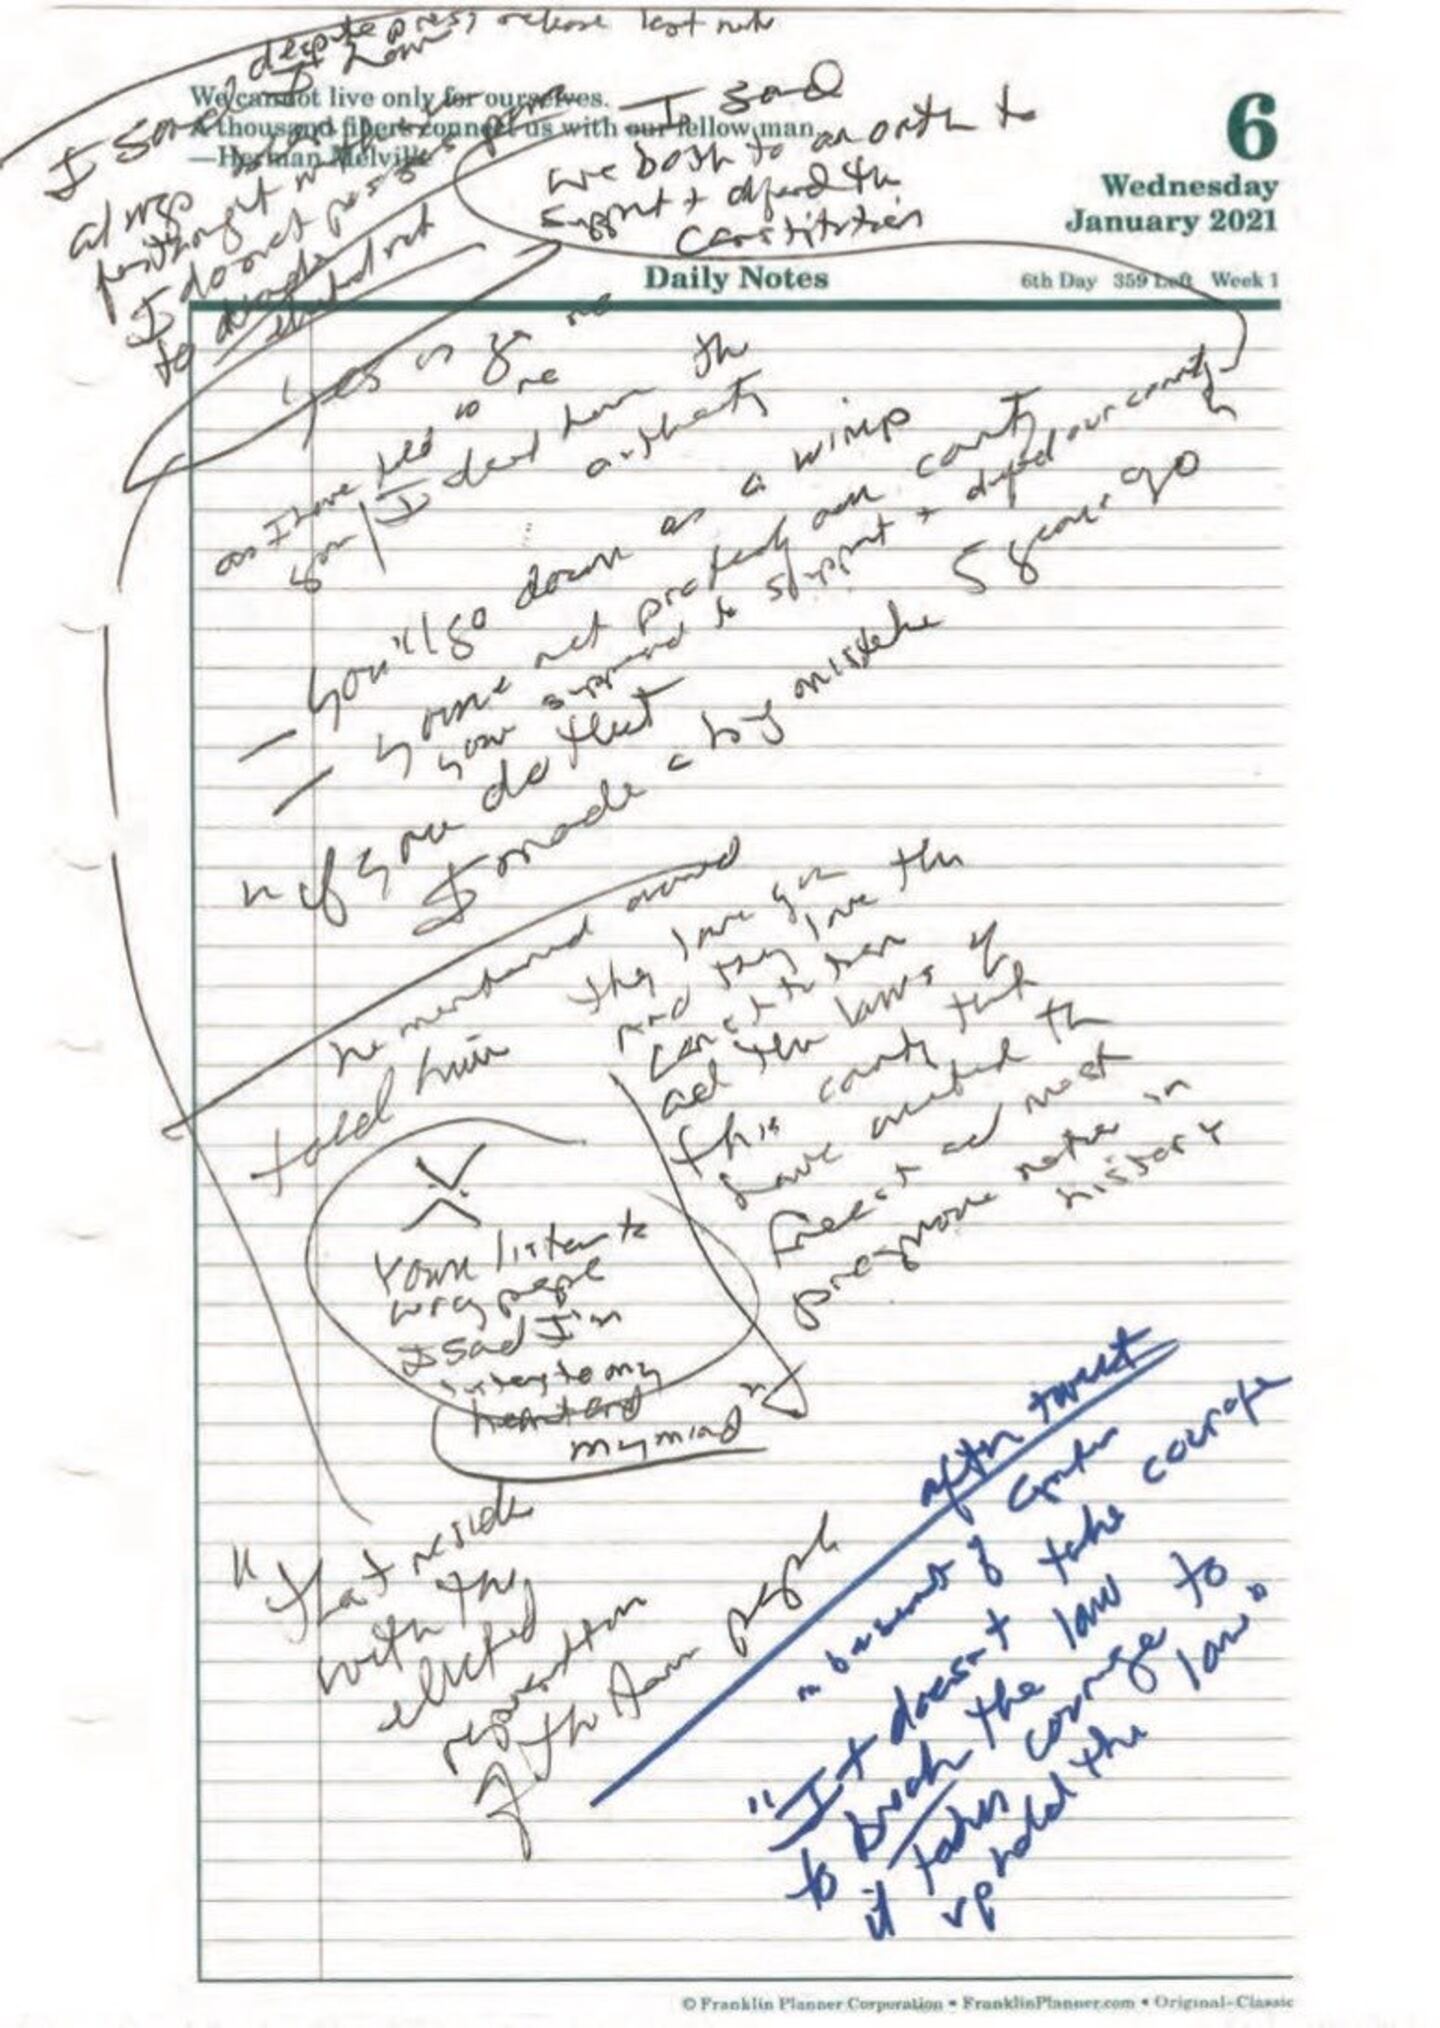 despite press release last nite
I said I have
always
I do not possess
to decide
We cannot live only for ourselves.
A thousand fibers connect us with our fellow man.
—Herman Melville
I said
we both to an oath to
support + defend the
Constitution
6
Wednesday
January 2021
Daily Notes
6th Day 359 Left Week 1
as I have told
you / I dont have the
authority
— You'll go down as a wimp
— your not protecting our country
your supposed to support + defend our country
" if you do that
I made a big mistake 5 years ago "
he mentioned
told him they love you
and they love the
Constitution
and the laws of
this country that
have created the
freest and most
prosperous nation in
history
Your listen to
wrong people
I said I'm
listeng to my
heart and
my mind "
" that reside
with the
elected
representatives
of the Amn people
after tweet
in basement of
" It doesn't take courage
to break the law
it takes courage to
uphold the law "
© Franklin Planner Corporation • FranklinPlanner.com • Original-Classic